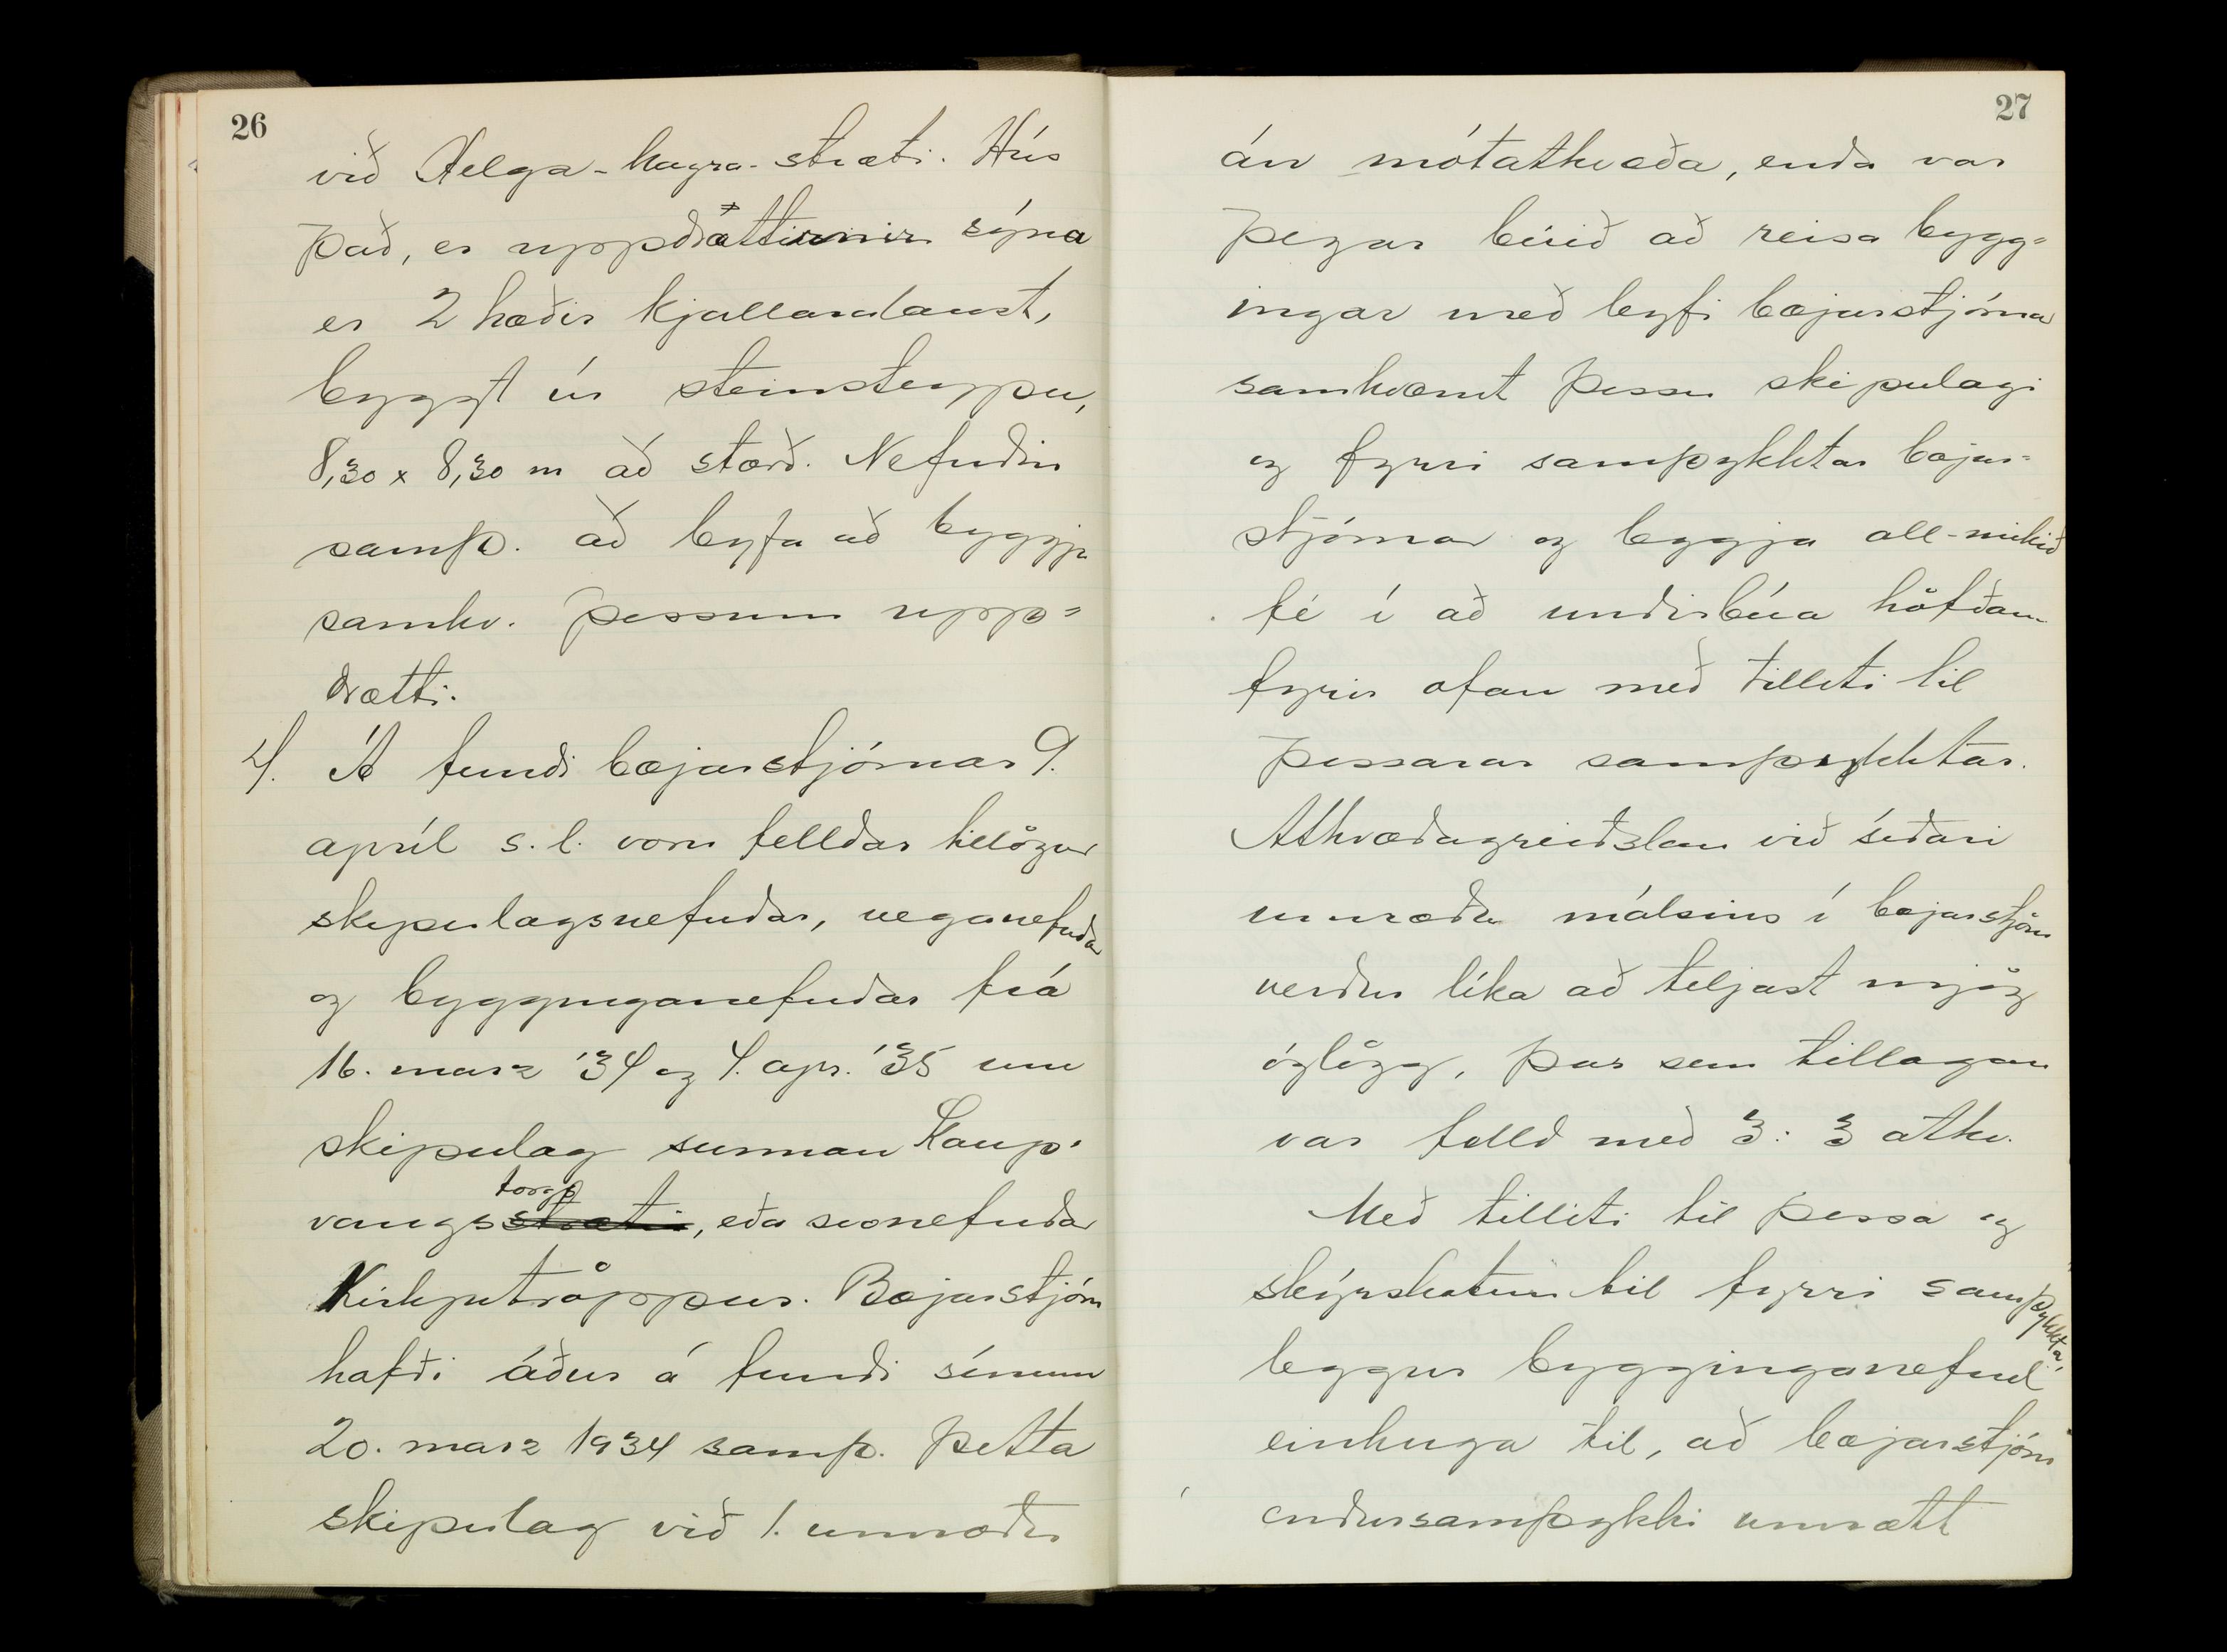 26
við Helga-magra-stræti. Hús
það, er uppdrættirnir sýna
er 2 hæðir kjallaralaust,
byggt úr steinsteypu,
8,30 x 8,30 m að stærð. Nefndin
samþ. að leyfa að byggja
samkv. þessum upp=
drætti.
4. Á fundi bæjarstjórnar 9.
apríl s.l. voru felldar tillögur
skipulagsnefndar, veganefndar
og bygginganefndar frá
16. marz '34 og 4. apr. '35 um
skipulag sunnan Kaup-
torgs
vangsstrætis, eða svonefndar
Kirkjutröppur. Bæjarstjórn
hafði áður á fundi sínum
20. marz 1934 samþ. þetta
skipulag við 1. umræðu
27
án mótatkvæða, enda var
þegar búið að reisa bygg=
ingar með leyfi bæjarstjórnar
samkvæmt þessu skipulagi
og fyrri samþykktar bæjar=
stjórnar og leggja all-mikið
fé í að undirbúa höfðann
fyrir ofan með tilliti til
þessarar samþykktar.
Atkvæðagreiðslan við síðari
umræðu málsins í bæjarstjórn
verður líka að teljast mjög
óglögg, þar sem tillagan
var felld með 3:3 atkv.
Með tilliti til þessa og
skýrskotun til fyrri samþykkta,
leggur bygginganefnd
einhuga til, að bæjarstjórn
endursamþykki umrætt